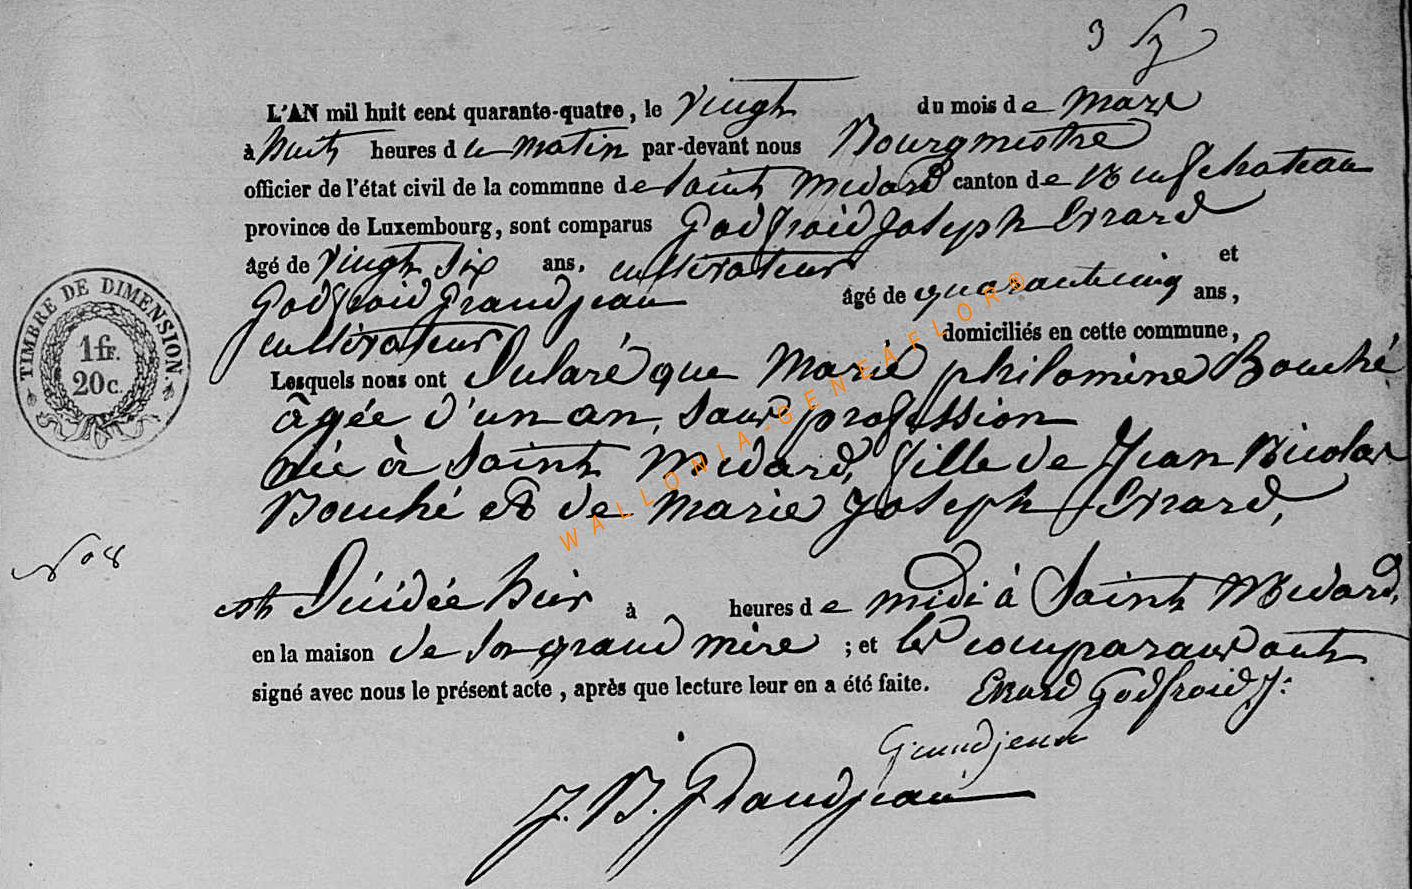 3
L'AN mil huit cent quarante-quatre, le vingt du mois de mars
à huit heures du matin par-devant nous Bourgmestre
officier de l'état civil de la commune de Saint Médard canton de Neufchateau
province de Luxembourg, sont comparus Godfroid Joseph Evrard
âgé de vingt six ans, cultivateur et
Godfroid Grandjean âgé de quarante cinq ans,
cultivateur domiciliés en cette commune,
Lesquels nous ont déclaré que Marie philomène Bouché
âgée d'un an, sans profession
née à Saint Médard, fille de Jean Nicolas
Bouché et de Marie Joseph Evrard,
est décédée hier à heures de midi à Saint Médard,
en la maison de sa grand mère ; et les comparans ont
signé avec nous le présent acte, après que lecture leur en a été faite. Evrard Godfroid J:
Grandjean
J. B. Grandjean
No 8
TIMBRE DE DIMENSION.
1 fr.
20 c.
WALLONIA-GENEAFLOR®